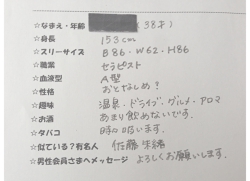 ☆なまえ・年齢 (38才)
☆身長 153cm
☆スリーサイズ B86・W62・H86
☆職業 セラピスト
☆血液型 A型
☆性格 おとなしめ?
☆趣味 温泉・ドライブ・グルメ・アロマ
☆お酒 あまり飲めないです。
☆タバコ 時々吸います。
☆似ている?有名人 佐藤
☆男性会員さまへメッセージ よろしくお願いします。